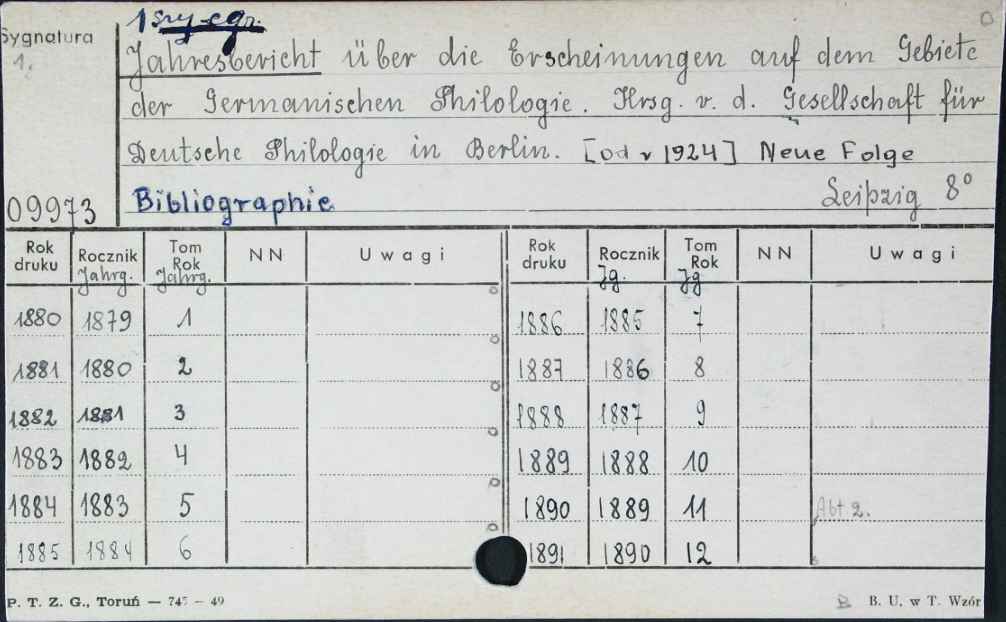 1 szy egz.
Sygnatura
1.
Jahresbericht über die Erscheinungen auf dem Gebiete
der Germanischen Philologie. Hrsg. v. d. Gesellschaft für
Deutsche Philologie in Berlin. [od r 1924] Neue Folge
09973 Bibliographie Leipzig 8°
Rok druku Rocznik Jahrg. Tom Rok Jahrg. NN Uwagi Rok druku Rocznik Jg. Tom Rok Jg NN Uwagi
1880 1879 1 1886 1885 7
1881 1880 2 1887 1886 8
1882 1881 3 1888 1887 9
1883 1882 4 1889 1888 10
1884 1883 5 1890 1889 11 Abt 2.
1885 1884 6 1891 1890 12
P. T. Z. G., Toruń — 745 — 49 B. U. w T. Wzór